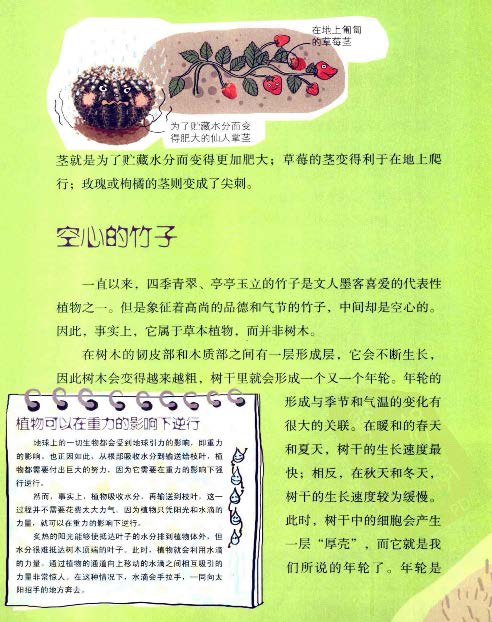 在地上匍匐
的草莓茎
为了贮藏水分而变
得肥大的仙人掌茎
茎就是为了贮藏水分而变得更加肥大；草莓的茎变得利于在地上爬
行；玫瑰或枸橘的茎则变成了尖刺。
空心的竹子
一直以来，四季青翠、亭亭玉立的竹子是文人墨客喜爱的代表性
植物之一。但是象征着高尚的品德和气节的竹子，中间却是空心的。
因此，事实上，它属于草本植物，而并非树木。
在树木的韧皮部和木质部之间有一层形成层，它会不断生长，
因此树木会变得越来越粗，树干里就会形成一个又一个年轮。年轮的
形成与季节和气温的变化有
很大的关联。在暖和的春天
和夏天，树干的生长速度最
快；相反，在秋天和冬天，
树干的生长速度较为缓慢。
此时，树干中的细胞会产生
一层“厚壳”，而它就是我
们所说的年轮了。年轮是
植物可以在重力的影响下逆行
地球上的一切生物都会受到地球引力的影响，即重力
的影响。也正因如此，从根部吸收水分到输送给枝叶，植
物都需要付出巨大的努力，因为它需要在重力的影响下强
行逆行。
然而，事实上，植物吸收水分，再输送到枝叶，这一
过程并不需要花费太大力气，因为植物只凭阳光和水滴的
力量，就可以在重力的影响下逆行。
炙热的阳光能够使抵达叶子的水分排到植物体外，但
水分很难抵达树木顶端的叶子。此时，植物就会利用水滴
的力量。通过植物的通道向上移动的水滴之间相互吸引的
力量非常惊人。在这种情况下，水滴会手拉手，一同向太
阳招手的地方奔去。